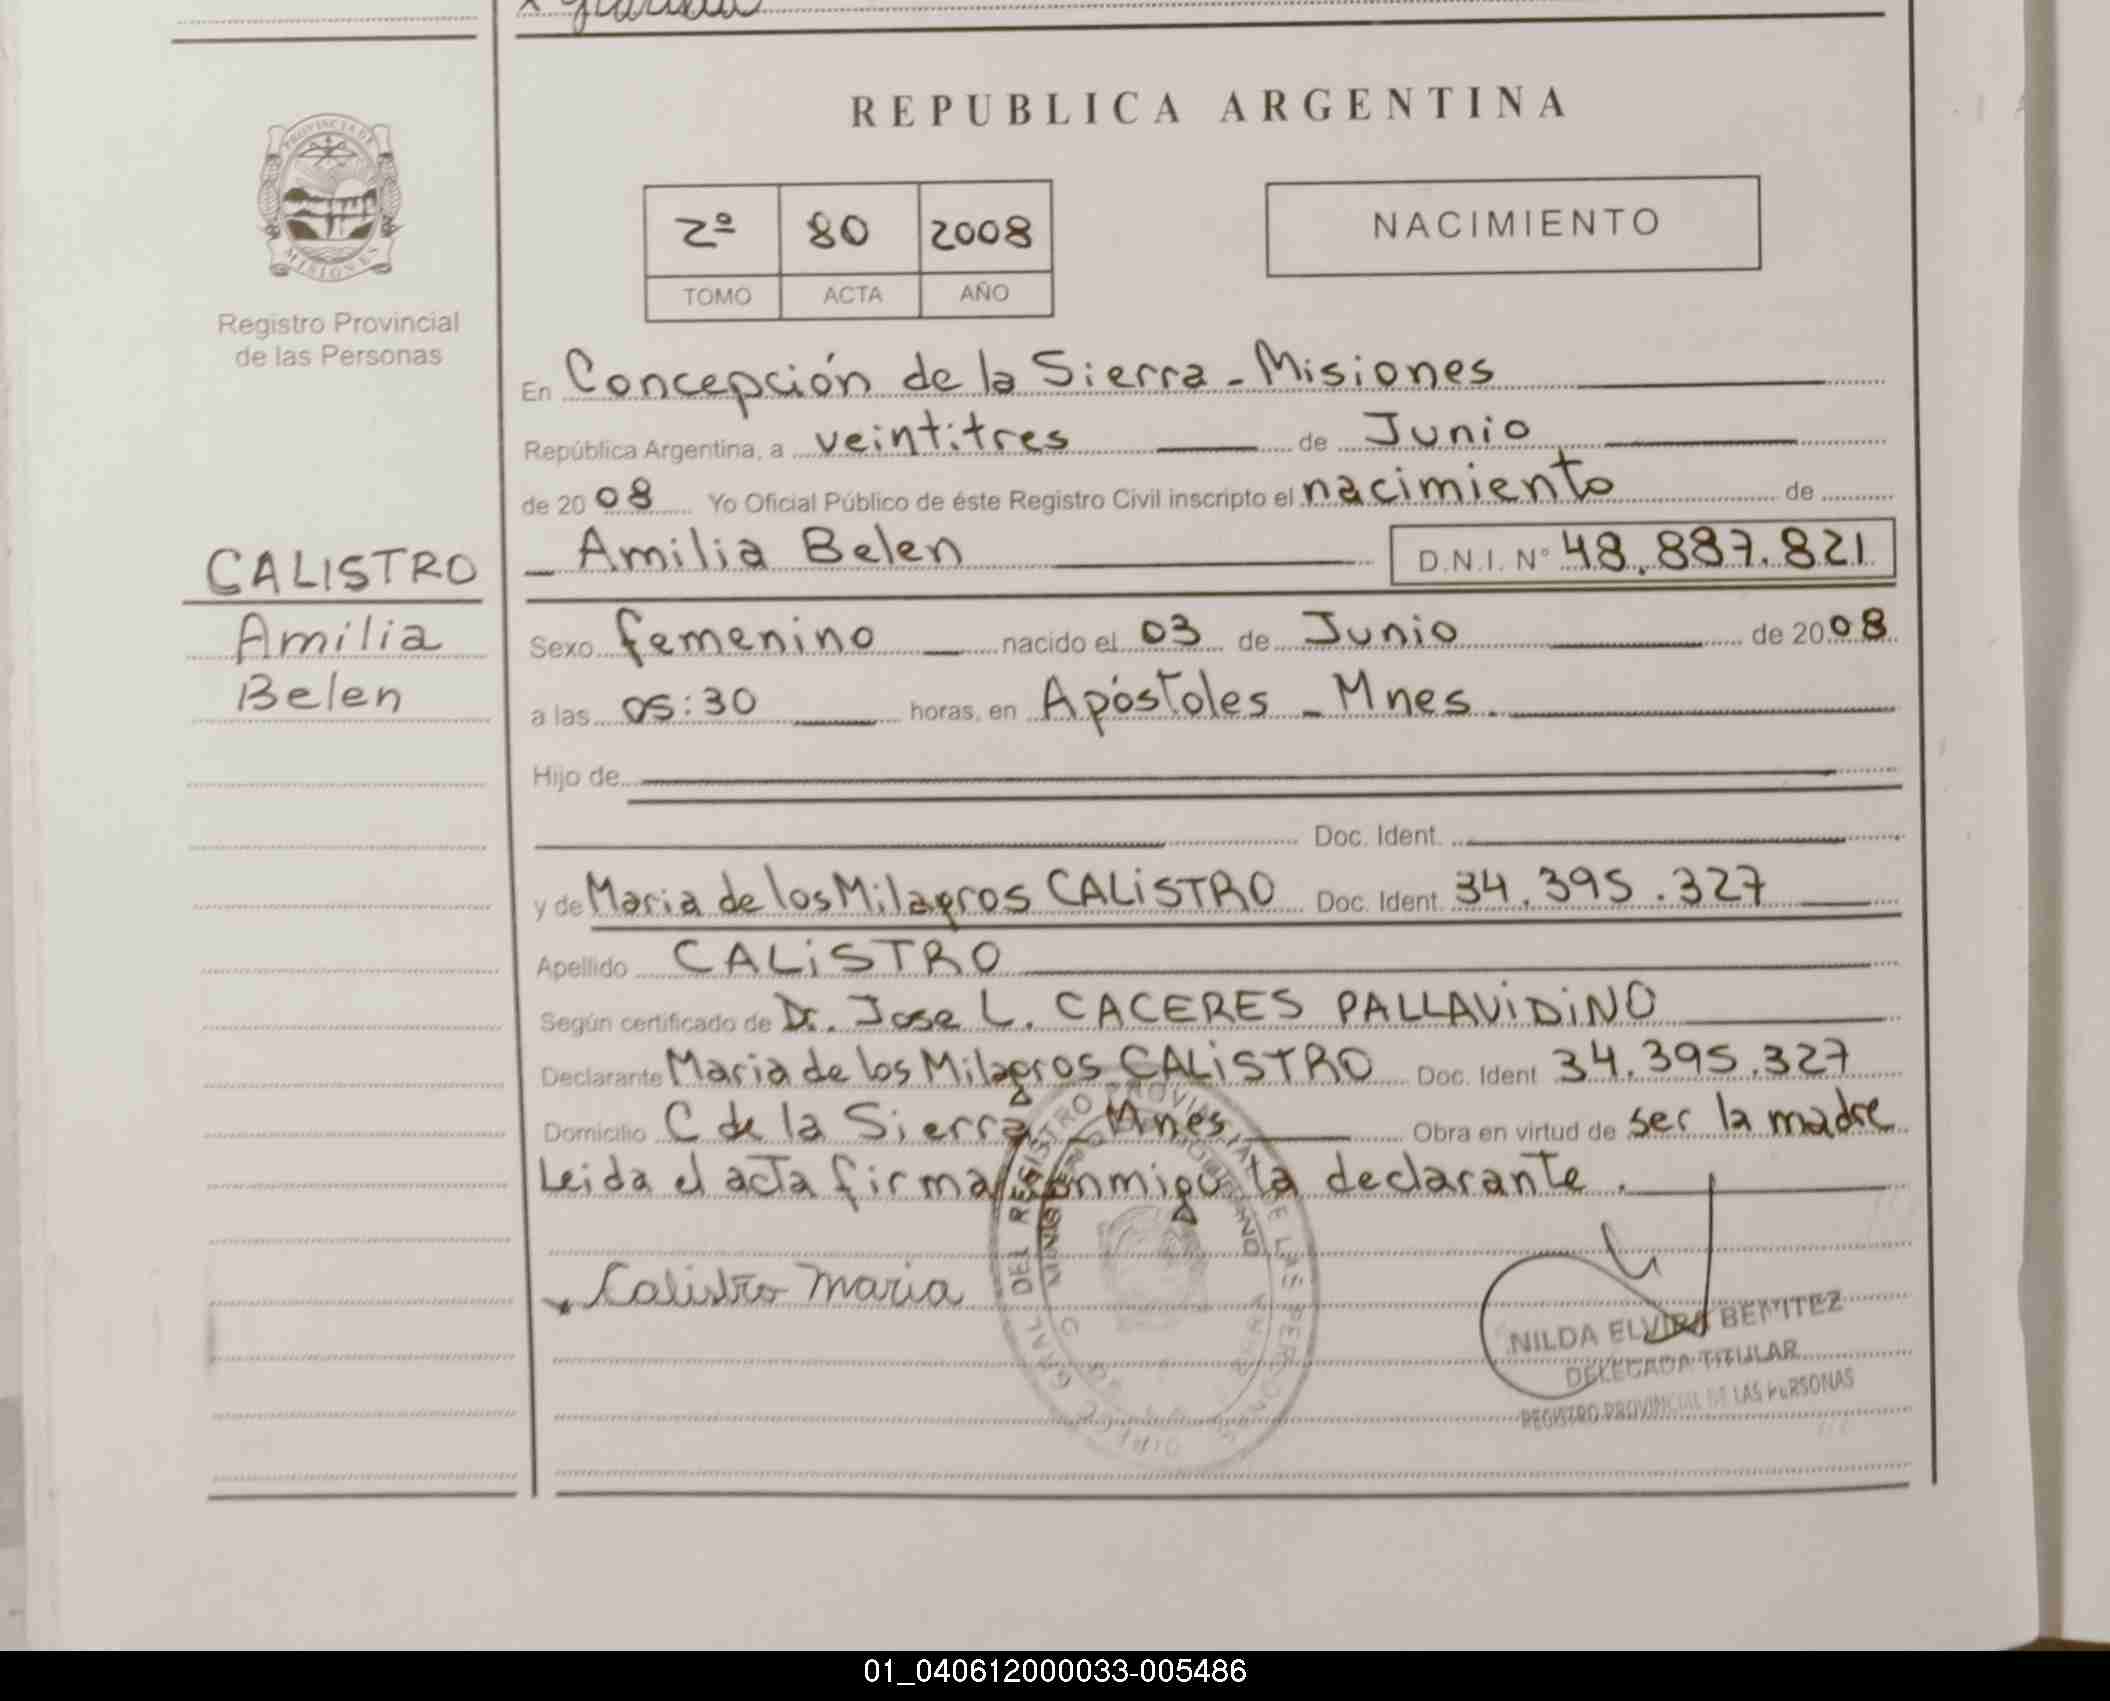 REPUBLICA ARGENTINA
PROVINCIA DE MISIONES
Registro Provincial
de las Personas
2º 80 2008
TOMO ACTA AÑO
NACIMIENTO
En Concepción de la Sierra - Misiones
República Argentina, a veintitres de Junio
de 2008 Yo Oficial Público de éste Registro Civil inscripto el nacimiento de
CALISTRO
Amilia
Belen
Amilia Belen D.N.I. Nº 48.887.821
Sexo femenino nacido el 03 de Junio de 2008
a las 05:30 horas, en Apóstoles - Mnes.
Hijo de
Doc. Ident.
y de Maria de los Milagros CALiSTRO Doc. Ident. 34.395.327
Apellido CALiSTRO
Según certificado de Dr. Jose L. CACERES PALLAViDiNO
Declarante Maria de los Milagros CALiSTRO Doc. Ident 34.395.327
Domicilio C de la Sierra - Mnes, Obra en virtud de ser la madre
Leida el acta firma conmigo la declarante.
Calistro Maria
NILDA ELVIRA BENITEZ
DELEGADA TITULAR
REGISTRO PROVINCIAL DE LAS PERSONAS
01_040612000033-005486